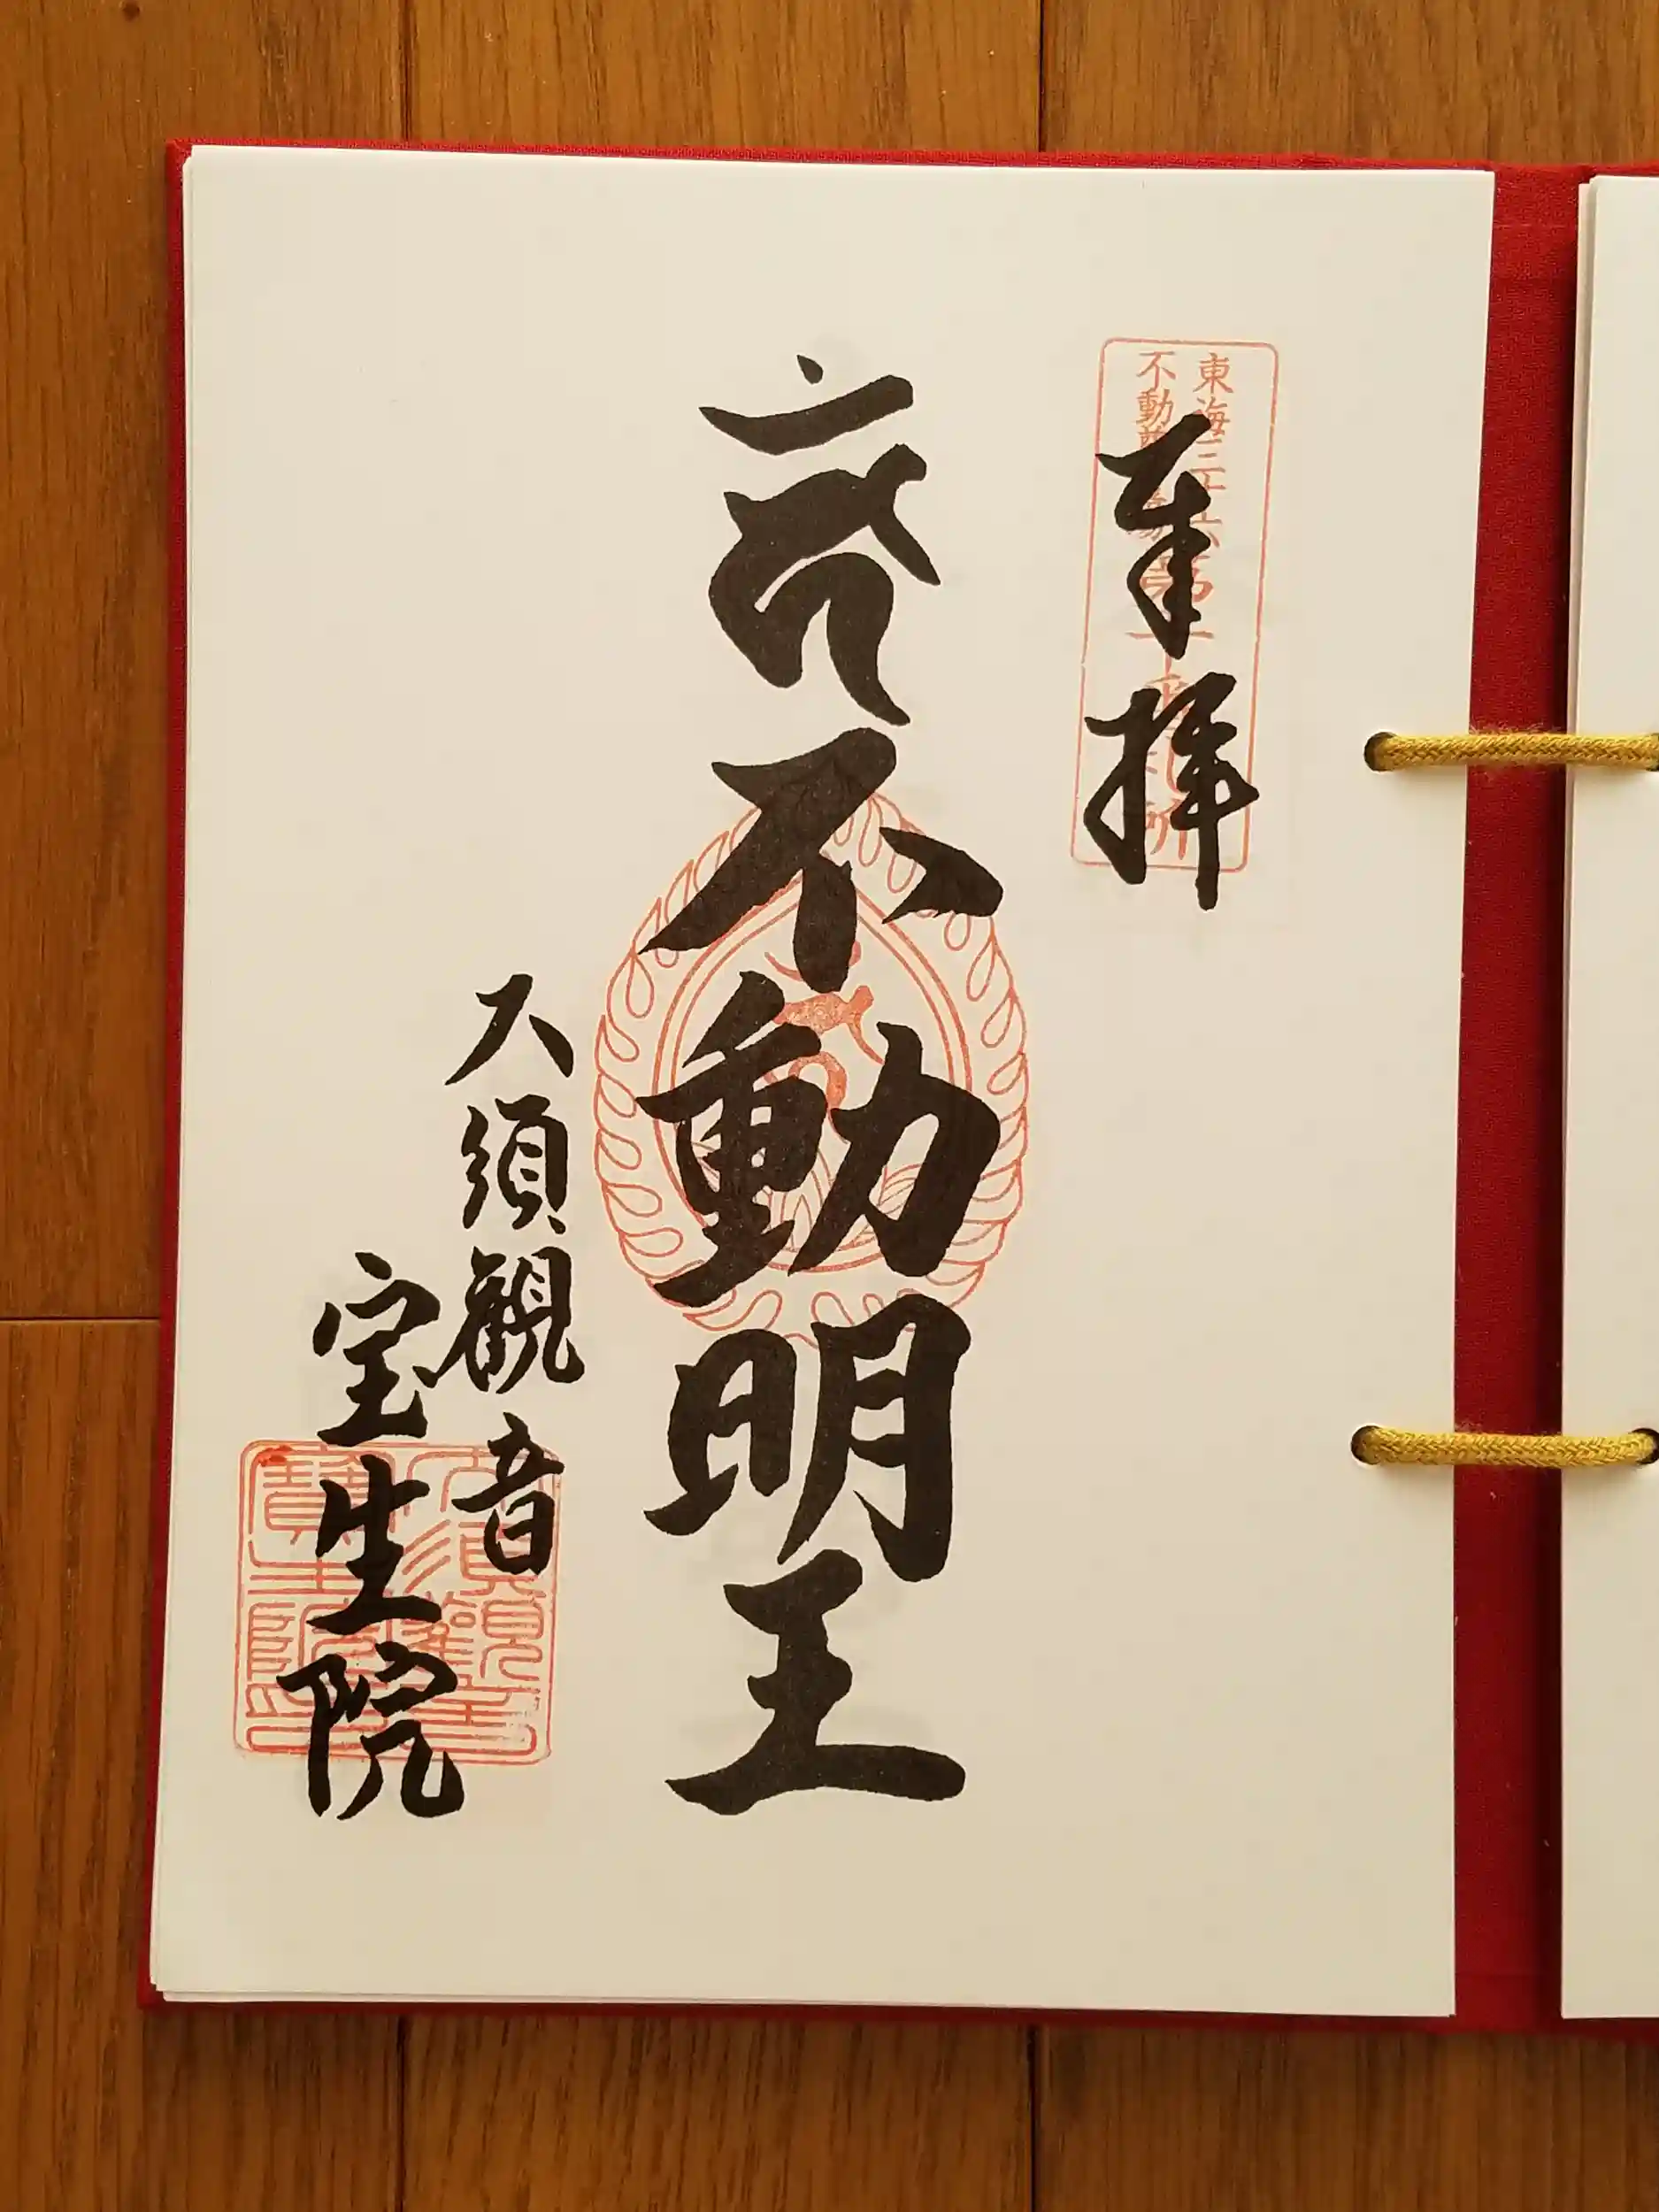 東海三十六
不動尊霊場
第十番札所
奉拝
不動明王
大須観音
宝生院